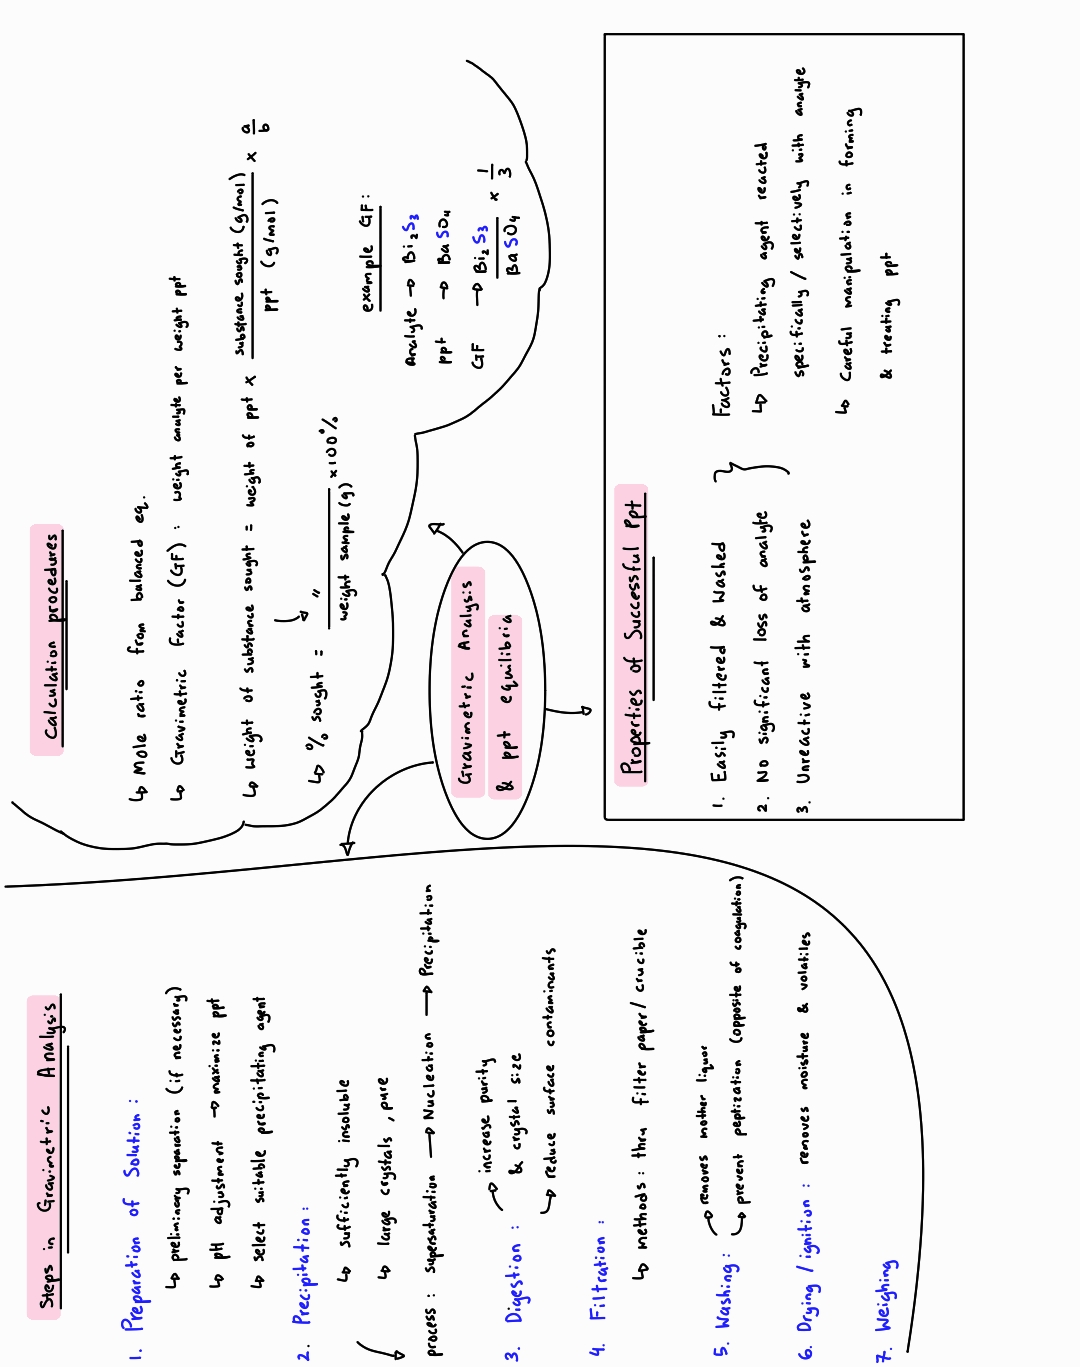 Steps in Gravimetric Analysis
1. Preparation of Solution :
↳ preliminary separation (if necessary)
↳ pH adjustment → maximize ppt
↳ select suitable precipitating agent
2. Precipitation :
↳ sufficiently insoluble
↳ large crystals , pure
process : supersaturation → Nucleation → Precipitation
3. Digestion :
increase purity
& crystal size
reduce surface contaminants
4. Filtration :
↳ methods : thru filter paper / crucible
5. Washing :
removes mother liquor
prevent peptization (opposite of coagulation)
6. Drying / ignition : removes moisture & volatiles
7. Weighing
Calculation procedures
↳ Mole ratio from balanced eq.
↳ Gravimetric Factor (GF) : weight analyte per weight ppt
↳ weight of substance sought = weight of ppt × substance sought (g/mol) / ppt (g/mol) × a/b
↳ % sought = " / weight sample (g) × 100%
example GF :
Analyte → Bi₂S₃
ppt → BaSO₄
GF → Bi₂S₃ / BaSO₄ × 1/3
Gravimetric Analysis
& ppt equilibria
Properties of Successful Ppt
1. Easily filtered & washed
2. No significant loss of analyte
3. Unreactive with atmosphere
Factors :
↳ Precipitating agent reacted
specifically / selectively with analyte
↳ Careful manipulation in forming
& treating ppt